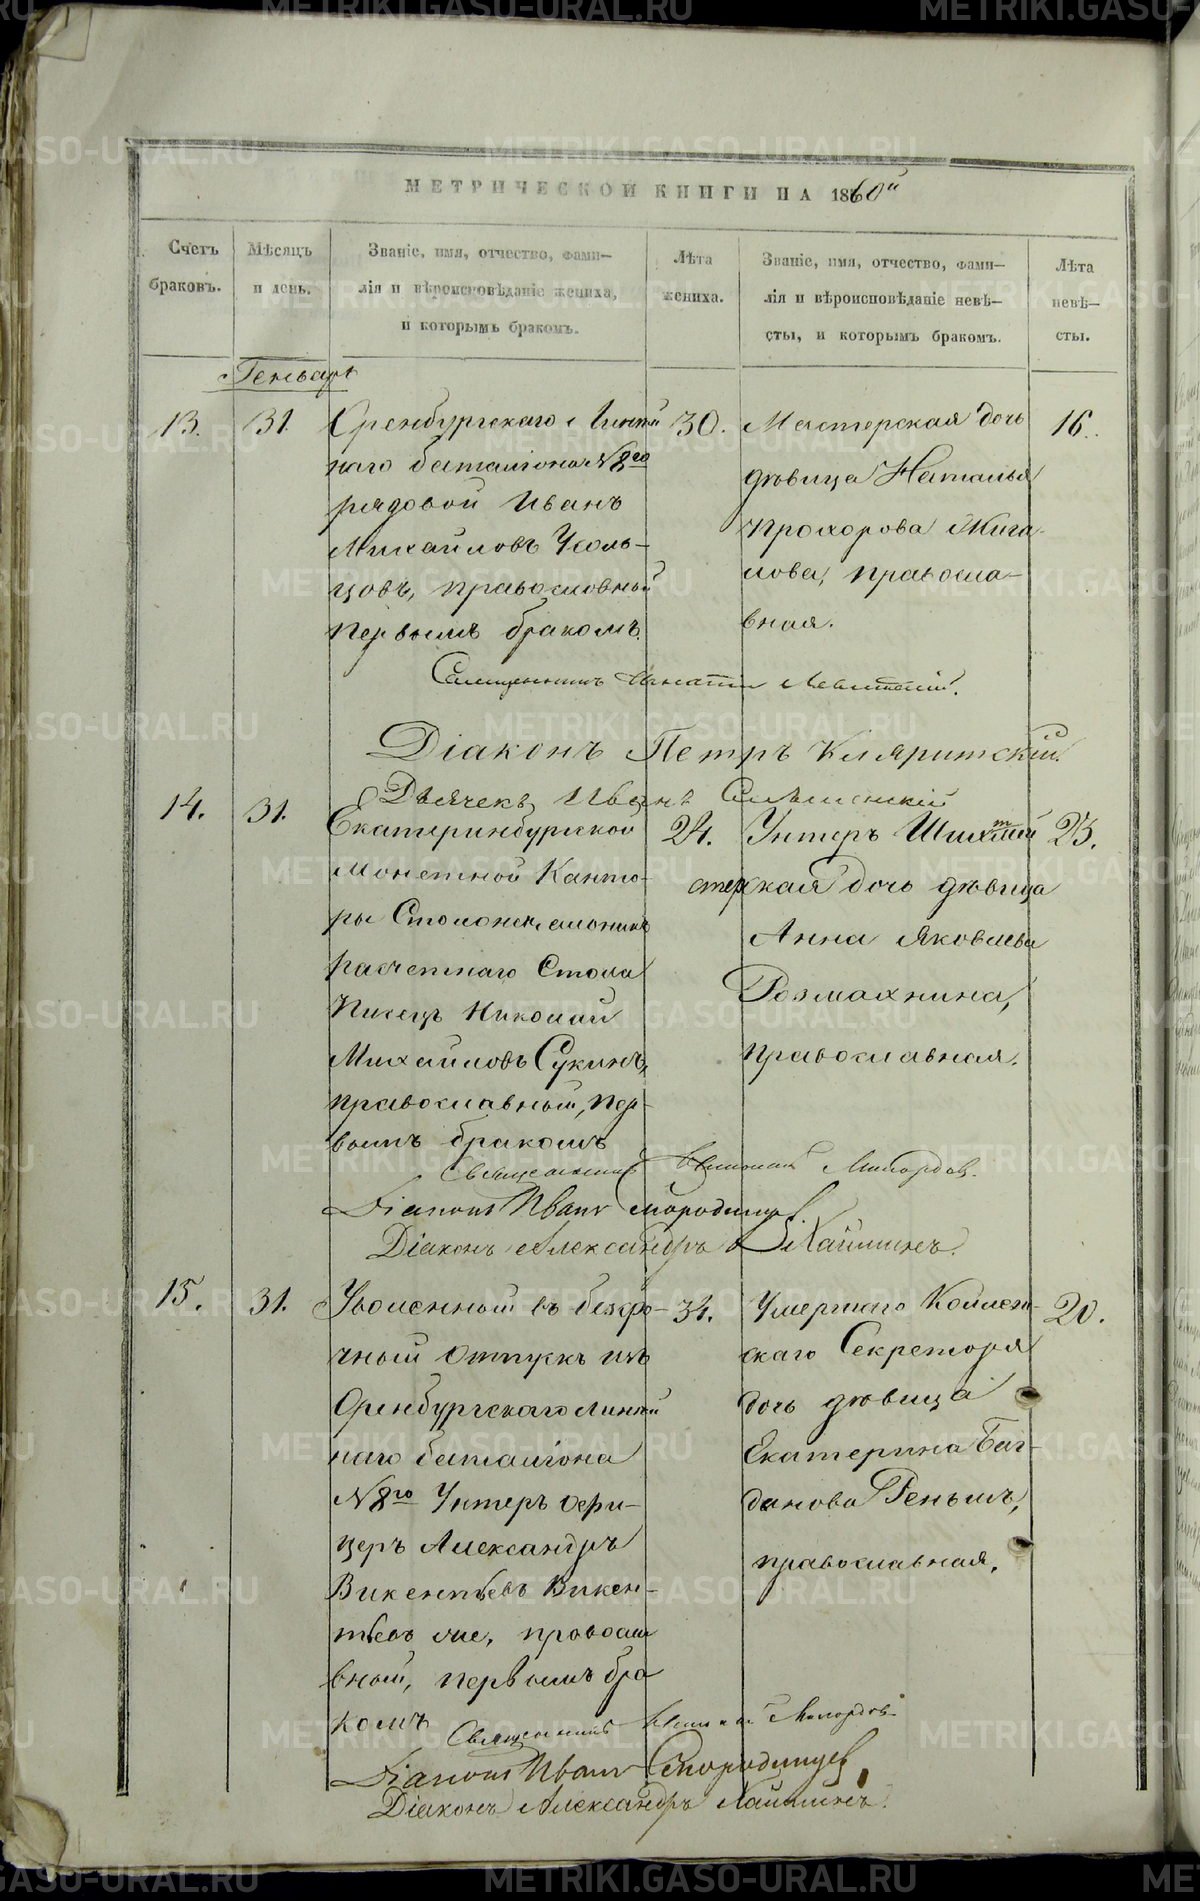 МЕТРИЧЕСКОЙ КНИГИ НА 1860й
Счетъ браковъ.
Мѣсяцъ и день.
Званіе, имя, отчество, фами-
лія и вѣроисповѣданіе жениха,
и которымъ бракомъ.
Лѣта жениха.
Званіе, имя, отчество, фами-
лія и вѣроисповѣданіе невѣ-
сты, и которымъ бракомъ.
Лѣта невѣ-
сты.
Генварь
13.
31.
Оренбургскаго Линей
наго баталіона №8го
рядовой Иванъ
Михайловъ Усоль-
цовъ, православный
первымъ бракомъ.
30.
Мастерская дочь
дѣвица Наталья
Прохорова Жига-
лова, правосла-
вная.
16.
Священникъ Левитскій.
Діаконъ Петръ
Дьячекъ Иванъ
14.
31.
Екатеринбургской
Монетной Канто-
ры
расчетнаго Стола
Писецъ Николай
Михайловъ Сукинъ,
православный, пер-
вымъ бракомъ
24.
Унтеръ Шихтмей
стерская дочь дѣвица
Анна Яковлева
Розмахнина,
православная.
23.
Священникъ Милордов.
Діаконъ Иванъ Смородинцев.
Діаконъ Александръ
15.
31.
Уволенный въ безсро-
чный отпускъ изъ
Оренбургскаго линей
наго баталіона
№8го Унтеръ офи-
церъ Александръ
Викентьевъ Викен-
тьевъ же, правосла
вный, первымъ бра
комъ
34.
Умершаго Коллеж-
скаго Секретаря
дочь дѣвица
Екатерина Баг-
данова Реньшъ,
православная.
20.
Священникъ Милордов
Діаконъ Иванъ Смородинцев
Діаконъ Александръ
METRIKI.GASO-URAL.RU